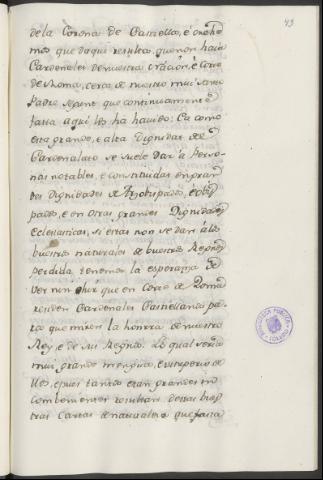 43
de la Corona de Castilla, é crehe
mos que daqui resulta, que non haia
Cardenales de nuestra nación, é Corte
de Roma, cerca de nuestro mui Santo
Padre, segunt que continuamente
fasta aqui los ha havido: Ca como
esta grande, e alta Dignidat del
Cardenalato se suele dar á Perso-
nas notables, e constituidas en gran-
des Dignidades de Arzobispados, e obis-
pados, e en otras grandes Dignidades
Eclesiasticas, si estas non se dan á los
vuestros naturales de vuestros Regnos
perdida tenemos la esperanza de
ver nin ohir que en Corte de Roma
residen Cardenales Castellanos pa-
ra que miren la honrra de nuestro
Rey, e de su Regno. Lo qual seria
mui grande mengua, e vituperio de
llos, e pues tantos e tan grandes in
combenientes resultan destas
tras Cartas de naturaleza que fasta